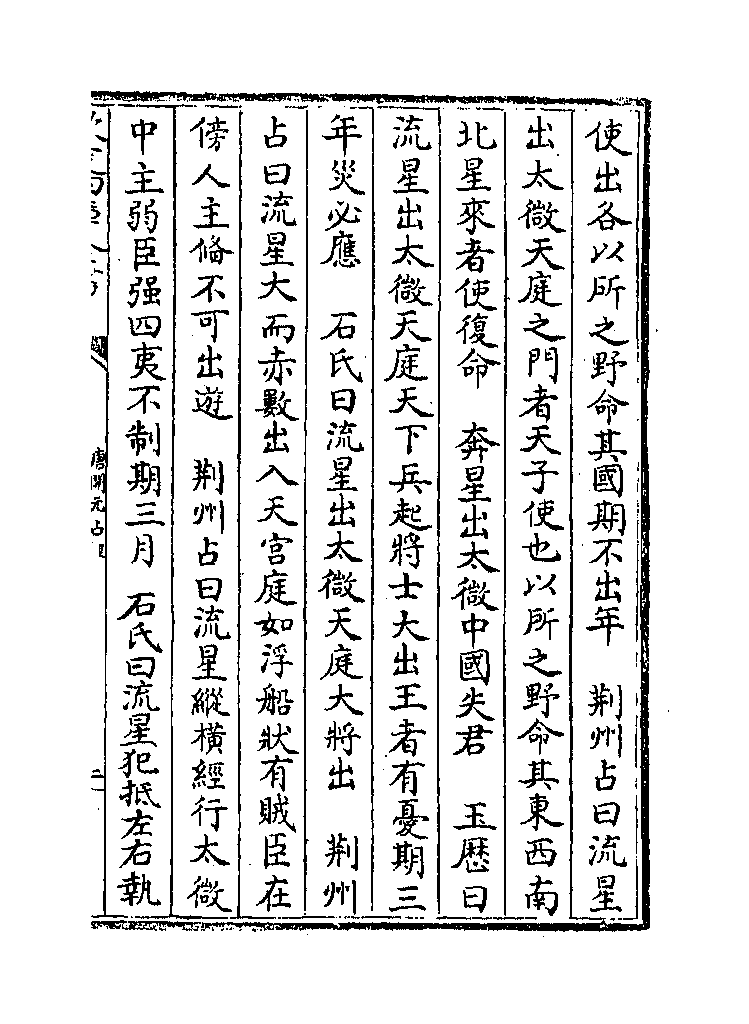 使出各以所之野命其國期不出年　荆州占曰流星
出太微天庭之門者天子使也以所之野命其東西南
北星來者使復命　奔星出太微中國失君　玉歴曰
流星出太微天庭天下兵起將士大出王者有憂期三
年災必應　石氏曰流星出太微天庭大將出　荆州
占曰流星大而赤數出入天宫庭如浮船狀有賊臣在
傍人主脩不可出遊　荆州占曰流星縱横經行太微
中主弱臣强四夷不制期三月　石氏曰流星犯抵左右執
唐開元占